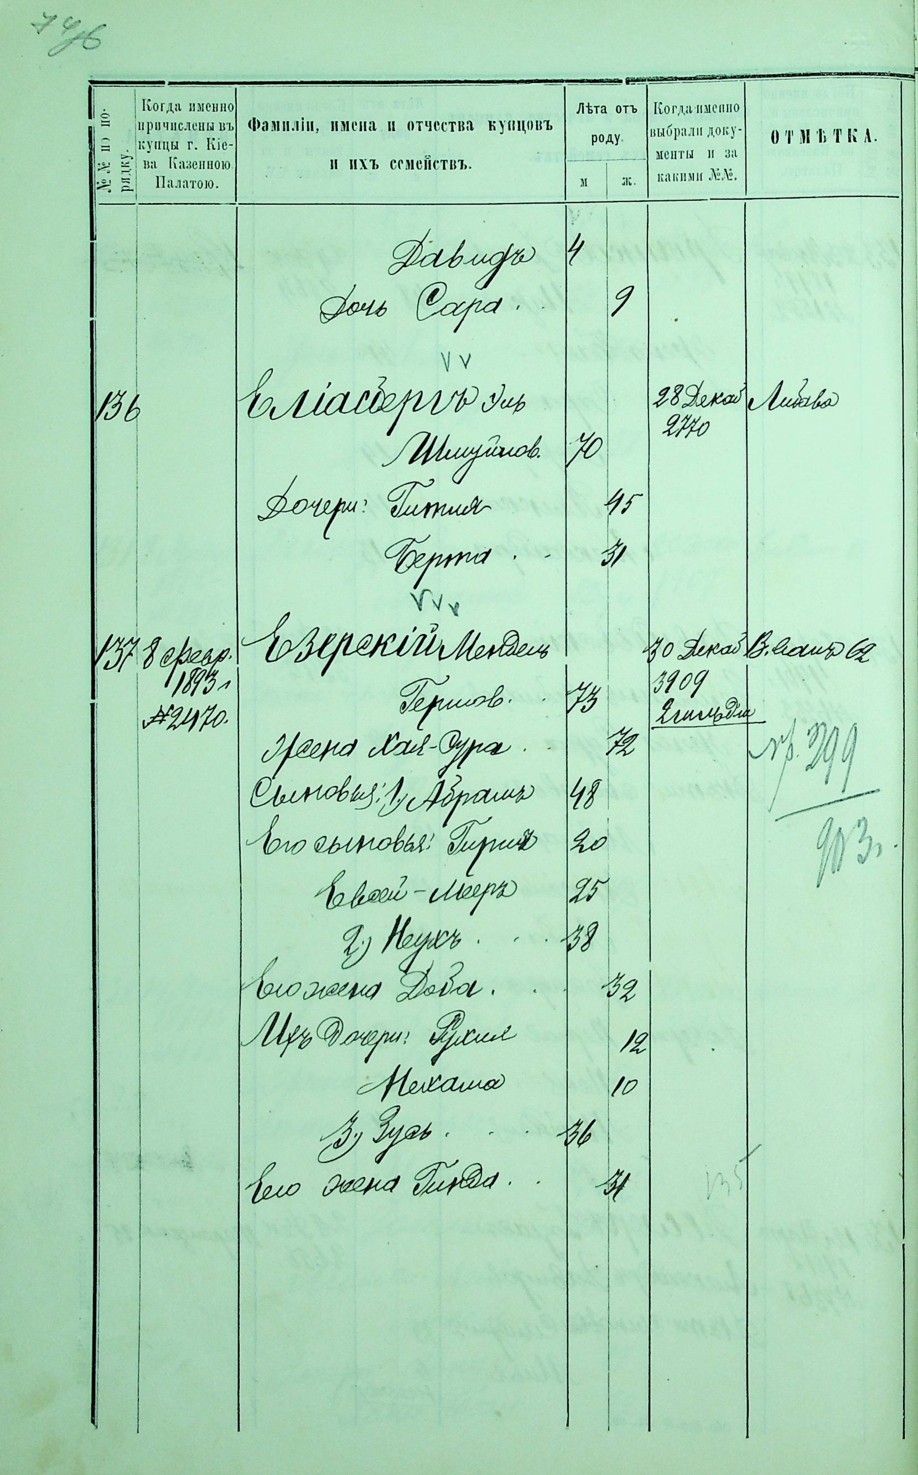 №№ по по-
рядку.
Когда именно
причислены въ
купцы г. Кіе-
ва Казенною
Палатою.
Фамиліи, имена и отчества купцовъ
и ихъ семействъ.
Лѣта отъ
роду.
м ж.
Когда именно
выбрали доку-
менты и за
какими №№.
ОТМѢТКА.
Давидъ 4
Дочь Сара . . 9
136 Еліасбергъ Эль 28 Декаб Либава
Шмуйлов. 70 2770
Дочери: Гитля 45
Берта . . 31
137 8 Февр. Езерскій Мендель 30 Декаб В. ->
1893 г Гершов. . 73 3909
№2470. 2 гильдіи
Жена Хая-Сура . 72 пр. 299
Сыновья: 1) Абрамъ 48 903 г.
Его сыновья: Гирша 20
Евсей-Мееръ 25
2) Неухъ . . . 38
Его жена Доба . . . 32
Ихъ дочери: Рухля 12
Нехама 10
3) Зусь . . . 36
Его жена Гинда . . 31
135